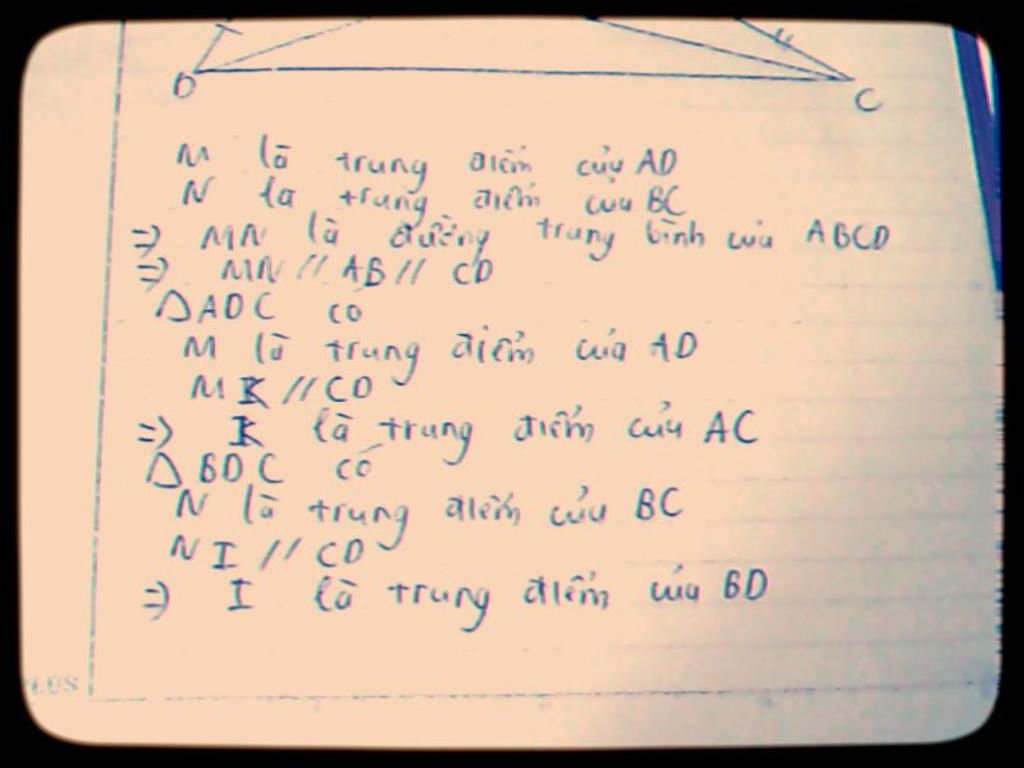 D
C
M là trung điểm của AD
N là trung điểm của BC
=> MN là đường trung bình của ABCD
=> MN // AB // CD
△ADC có
M là trung điểm của AD
MK // CD
=> K là trung điểm của AC
△BDC có
N là trung điểm của BC
NI // CD
=> I là trung điểm của BD